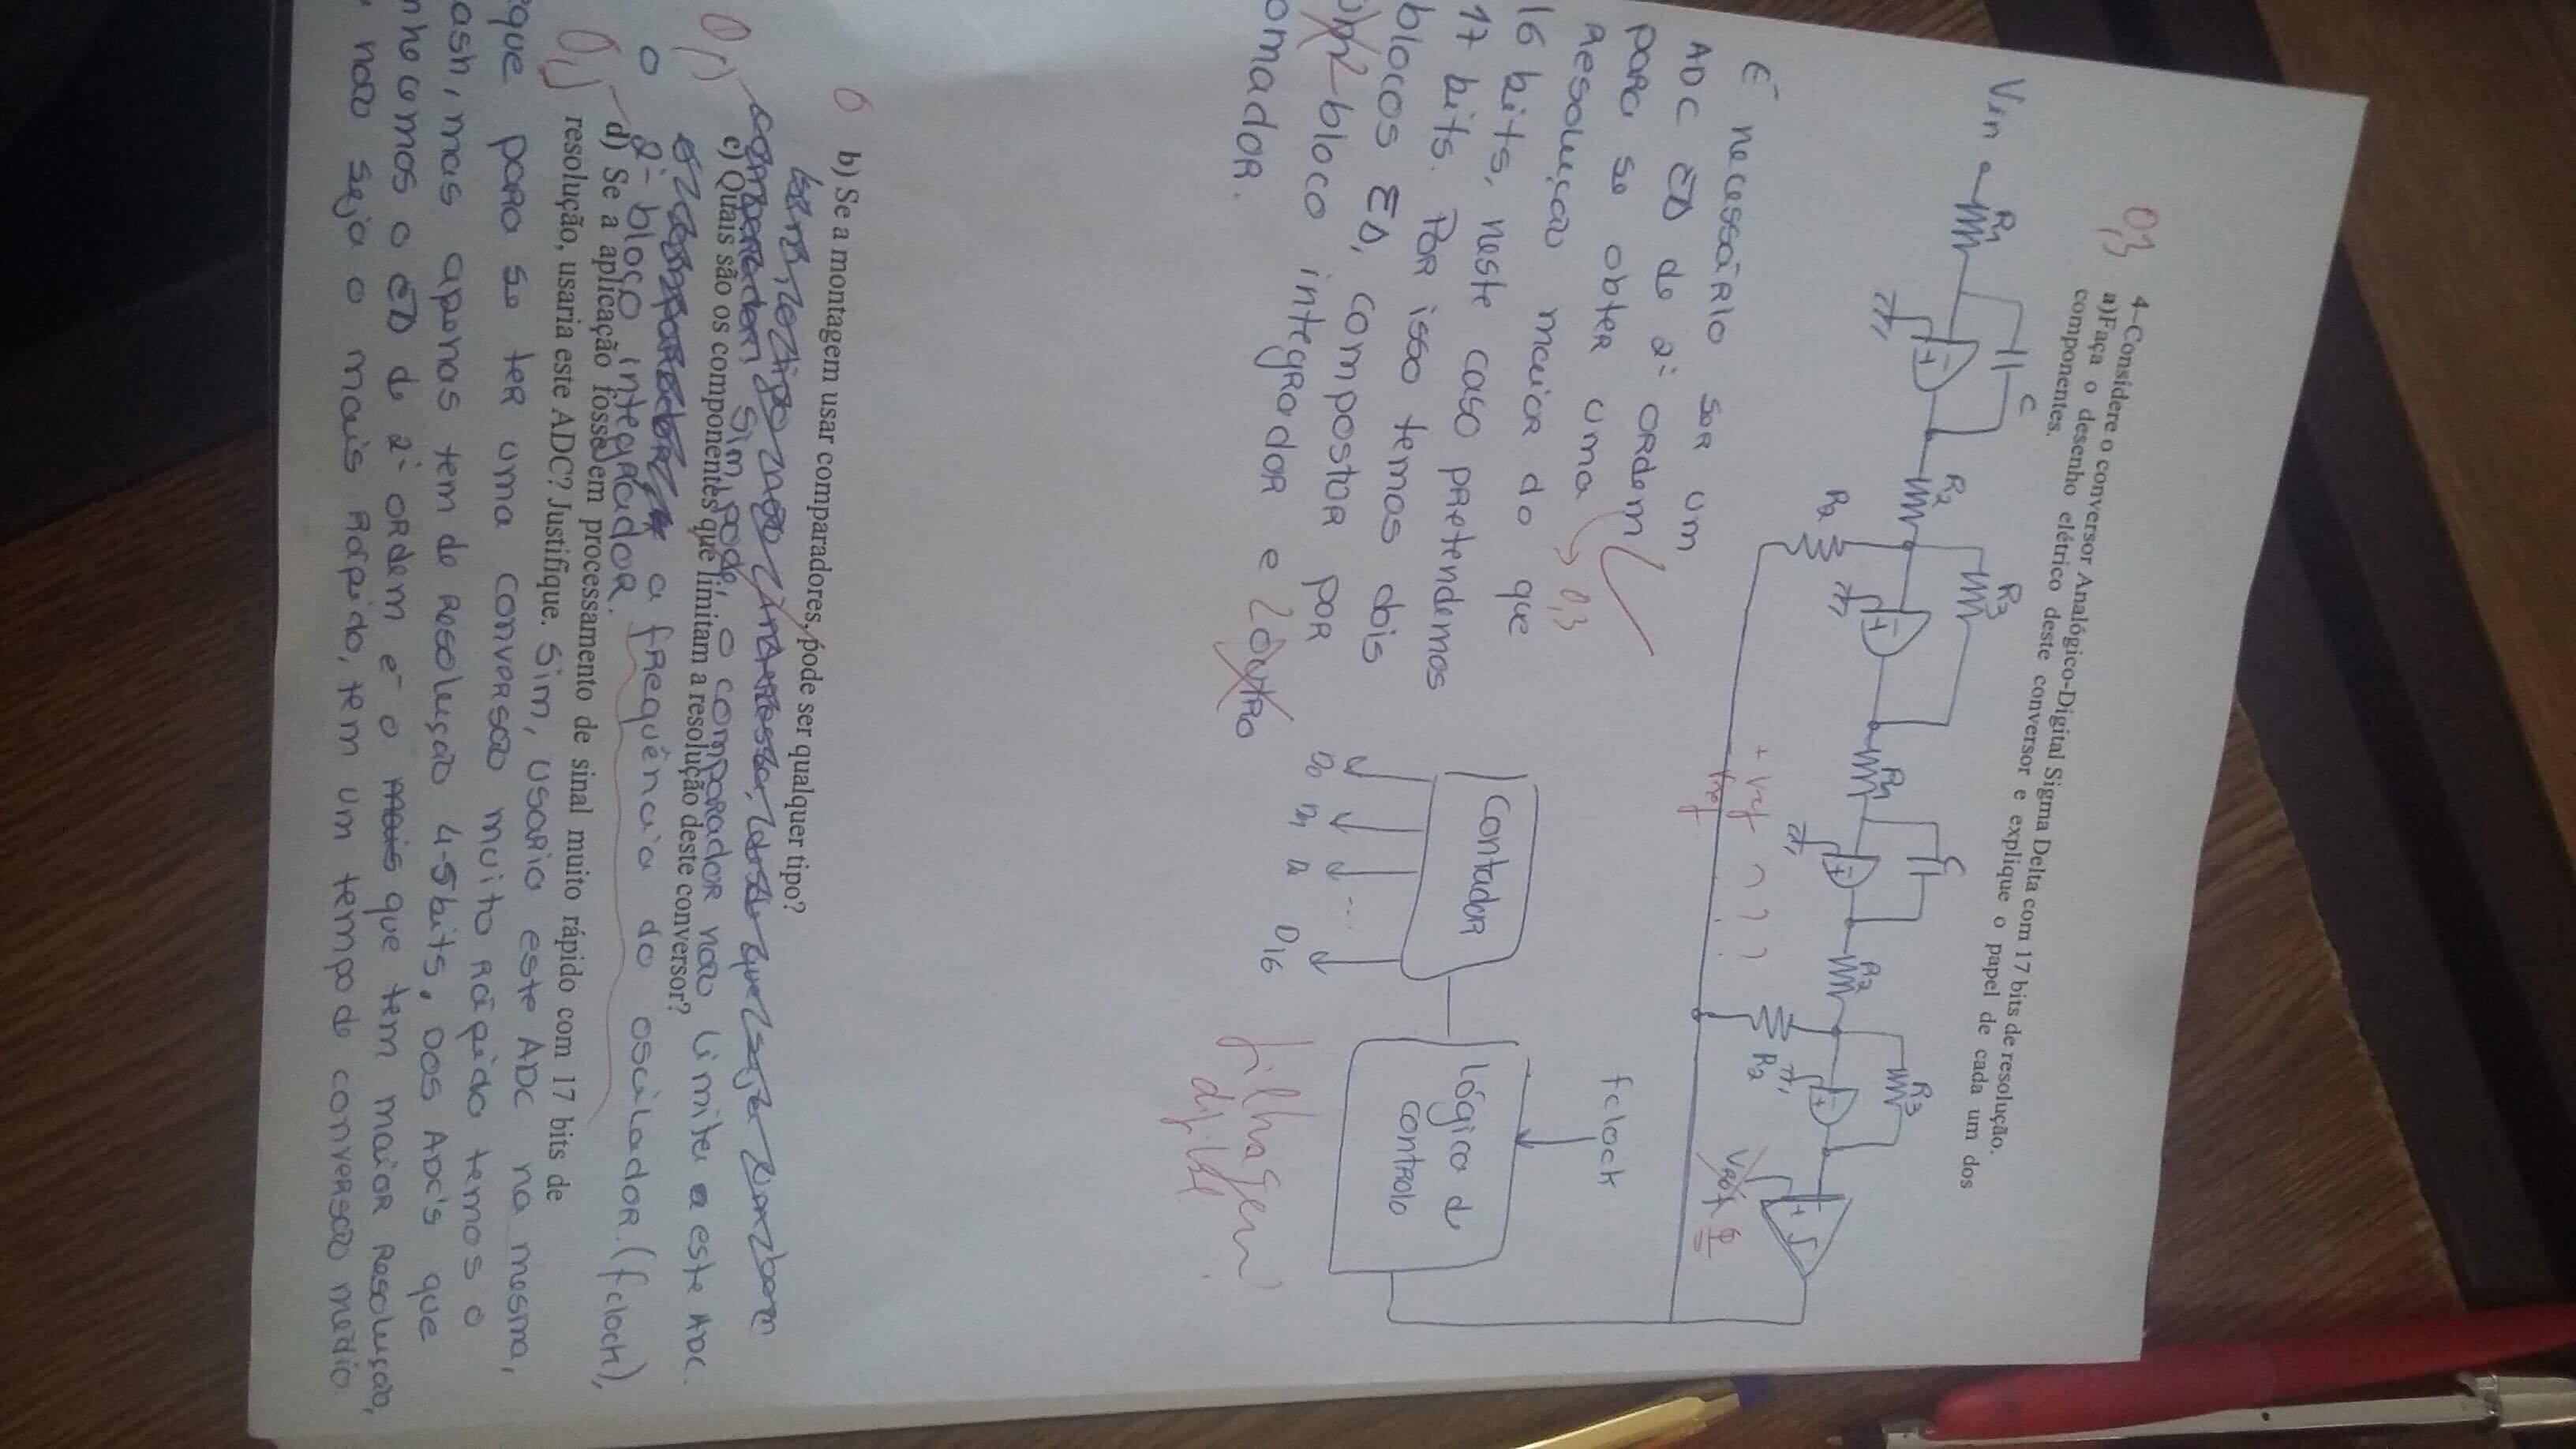 0,3
4–Considere o conversor Analógico-Digital Sigma Delta com 17 bits de resolução.
a)Faça o desenho elétrico deste conversor e explique o papel de cada um dos
componentes.
Vin R1 C R2 R3 R2 R1 C R2 R3 R2
+ Vref ? ? ?
- Vref
Vref 0
É necessário ser um
ADC ΣΔ de 2ª ordem
para se obter uma → 0,3
Resolução maior do que
16 bits, neste caso pretendemos
17 bits. Por isso temos dois
blocos ΣΔ, compostor por
2 bloco integrador e 2 outro
omador.
fclock
Contador
lógica d
controlo
D0 D1 D16
filtragem
digital ?
0 b) Se a montagem usar comparadores, pode ser qualquer tipo?
Sim, pode, o comparador não limita a este ADC.
c) Quais são os componentes que limitam a resolução deste conversor?
a frequência do oscilador (fclock),
o 2º bloco integrador.
d) Se a aplicação fosse em processamento de sinal muito rápido com 17 bits de
resolução, usaria este ADC? Justifique. Sim, usaria este ADC na mesma,
que para se ter uma conversão muito rápida temos o
ash, mas apenas tem de Resolução 4-5 bits. Dos ADC's que
nhecemos o ΣΔ de 2ª ordem é o mais que tem maior Resolução,
não seja o mais Rápido, tem um tempo de conversão médio